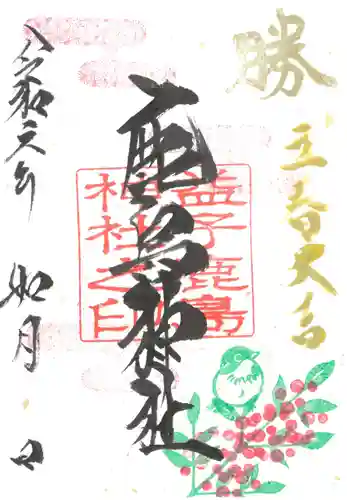 勝
立春大吉
鹿島神社
益子鹿島
神社之印
令和六年 如月 日